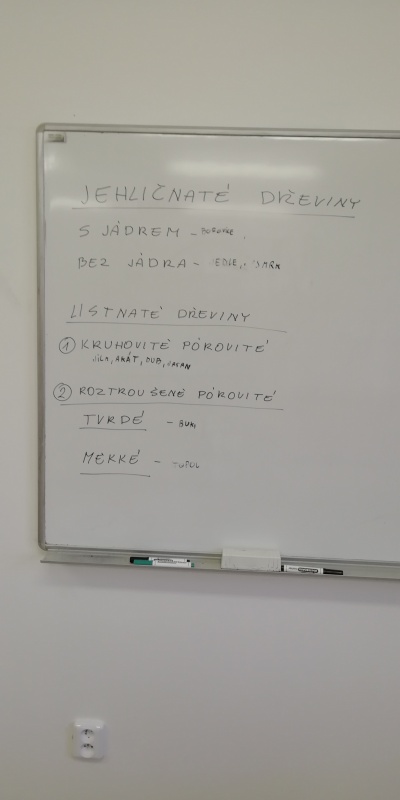 JEHLIČNATÉ DŘEVINY
S JÁDREM - BOROVICE,
BEZ JÁDRA - JEDLE, SMRK
LISTNATÉ DŘEVINY
① KRUHOVITĚ PÓROVITÉ
JILM, AKÁT, DUB, JASAN
② ROZTROUŠENĚ PÓROVITÉ
TVRDÉ - BUK,
MĚKKÉ - TOPOL